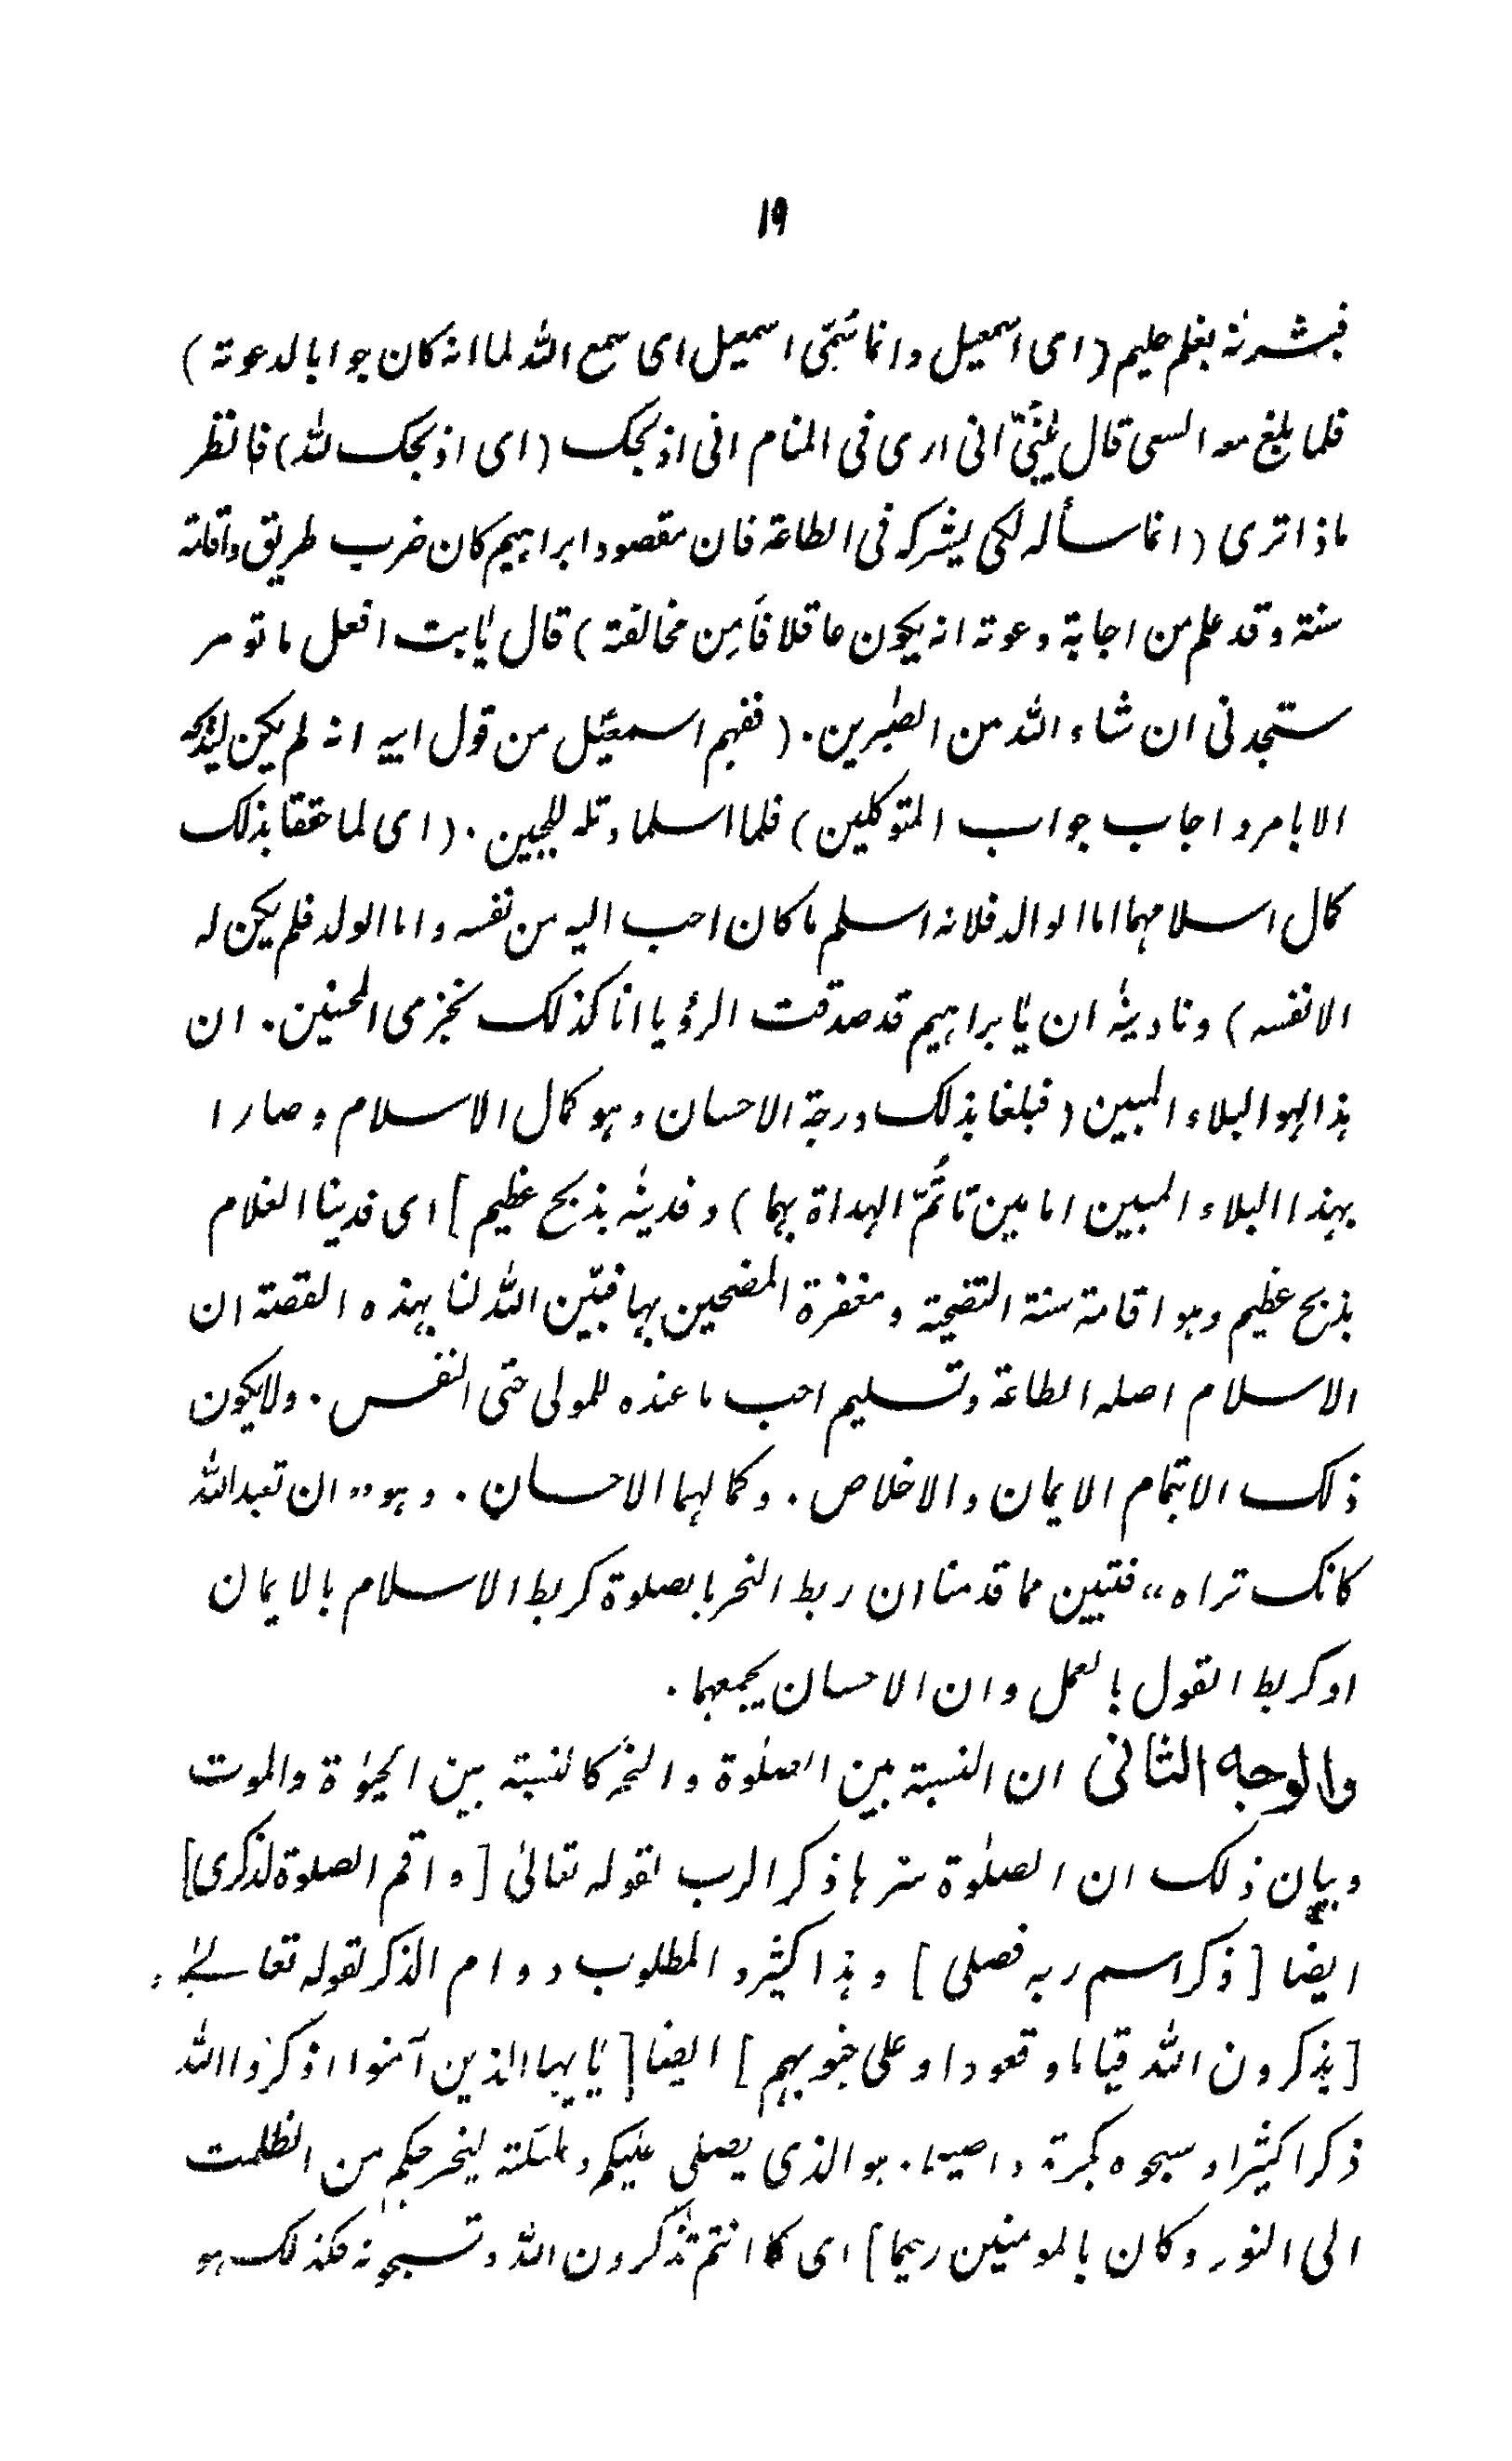 ۱۹
فبشرنٰه بغلم حلیم (ای اسمعیل وانما سُمّی اسمعیل ای سمع اللہ لما انہ کان جوابا لدعوتہ)
فلما بلغ معہ السعی قال یٰبنیّ انی اری فی المنام انی اذبحک (ای اذبحک للہ) فانظر
ماذا تری (انما سألہ لکی یشرکہ فی الطاعة فان مقصود ابراہیم کان ضرب طریق واقامة
سنة وقد علم من اجابة دعوتہ انہ یکون عاقلا فاَمِن مخالفتہ) قال یٰابت افعل ما تومر
ستجدنی ان شاء اللہ من الصٰبرین. (ففہم اسمعیل من قول ابیہ انہ لم یکن لیذبحہ
الا بامر واجاب جواب المتوکلین) فلما اسلما وتلہ للجبین. (ای لما حققا بذلک
کمال اسلامہما اما الوالد فلانہ اسلم ما کان احب الیہ من نفسہ واما الولد فلم یکن لہ
الا نفسہ) ونادینٰہ ان یٰابراہیم قد صدقت الرؤیا انا کذلک نجزی المحسنین. ان
ہذا لہو البلاء المبین (فبلغا بذلک درجة الاحسان وہو کمال الاسلام وصارا
بہذا البلاء المبین امامین تأتُمّ الہداة بہما) وفدینٰہ بذبح عظیم] ای فدینا الغلام
بذبح عظیم وہو اقامة سنة التضحیة ومغفرة المضحین بہا فبیّن اللہ لنا بہذہ القصة ان
الاسلام اصلہ الطاعة وتسلیم احب ما عندہ للمولی حتی النفس. ولا یکون
ذلک الا بتمام الایمان والاخلاص. وکمالہما الاحسان. وہو „ان تعبد اللہ
کانک تراہ“ فتبین مما قدمنا ان ربط النحر بالصلوة کربط الاسلام بالایمان
او کربط القول بالعمل وان الاحسان یجمعہما.
والوجہ الثانی ان النسبة بین الصلٰوة والنحر کالنسبة بین الحیٰوة والموت
وبیان ذلک ان الصلٰوة سرہا ذکر الرب لقولہ تعالیٰ [واقم الصلوة لذکری]
ایضا [ذکر اسم ربہ فصلی] وہذا کثیر والمطلوب دوام الذکر لقولہ تعالیٰ
[یذکرون اللہ قیاما وقعودا وعلی جنوبہم] ایضا [یٰایہا الذین آمنوا اذکروا اللہ
ذکرا کثیرا وسبحوہ بکرة واصیلا. ہو الذی یصلی علیکم وملٰئکتہ لیخرجکم من الظلمت
الی النور وکان بالمومنین رحیما] ای کما انتم تذکرون اللہ وتسبحونہ فکذلک ہو